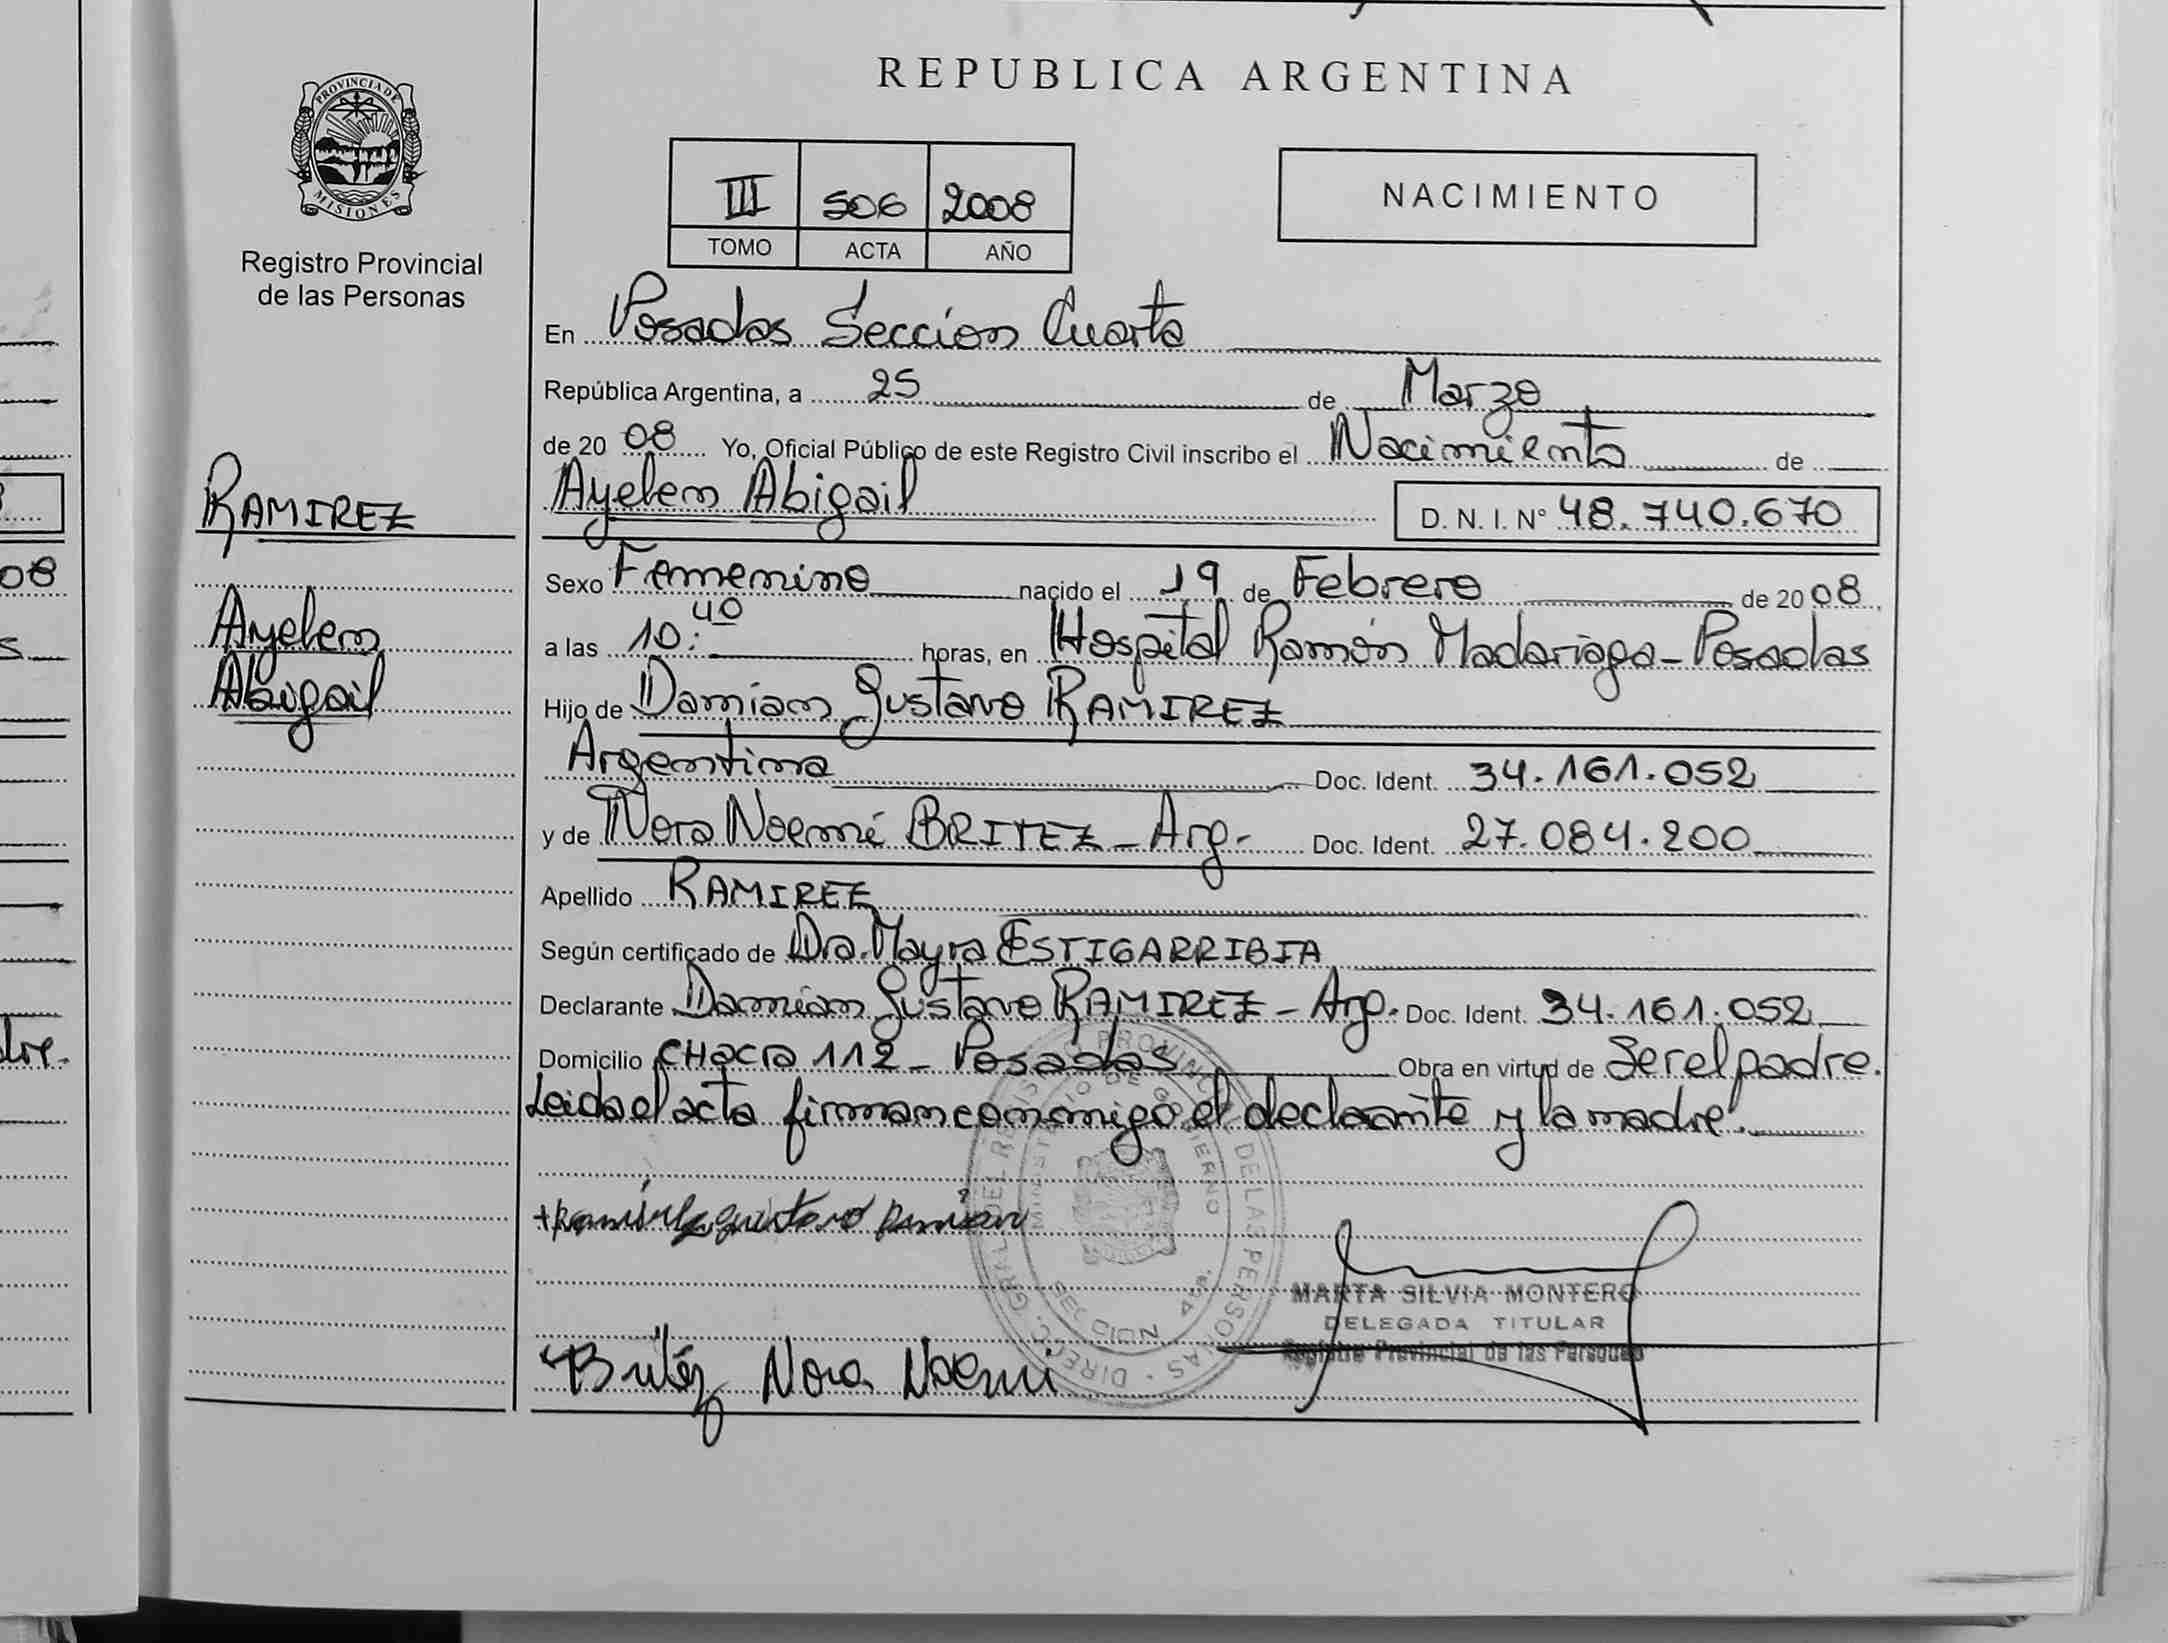 REPUBLICA ARGENTINA
PROVINCIA DE MISIONES
Registro Provincial
de las Personas
III 506 2008
TOMO ACTA AÑO
NACIMIENTO
En Posadas Sección Cuarta
República Argentina, a 25 de Marzo
de 2008 Yo, Oficial Público de este Registro Civil inscribo el Nacimiento de
RAMIREZ
Ayelen Abigail D. N. I. N° 48.740.670
Sexo Femenino nacido el 19 de Febrero de 2008
Ayelen
a las 10:40 horas, en Hospital Ramón Madariaga - Posadas
Abigail
Hijo de Damian Gustavo RAMIREZ
Argentina Doc. Ident. 34.161.052
y de Nora Noemí BRITEZ - Arg. Doc. Ident. 27.084.200
Apellido RAMIREZ
Según certificado de Dra. Mayra ESTIGARRIBIA
Declarante Damian Gustavo RAMIREZ - Arg. Doc. Ident. 34.161.052
Domicilio CHacra 112 - Posadas Obra en virtud de Ser el padre.
Leida el acta firman conmigo el declarante y la madre.
Ramirez gustavo Damian
MARTA SILVIA MONTERO
DELEGADA TITULAR
Registro Provincial de las Personas
Britez Nora Noemi
08
dre.